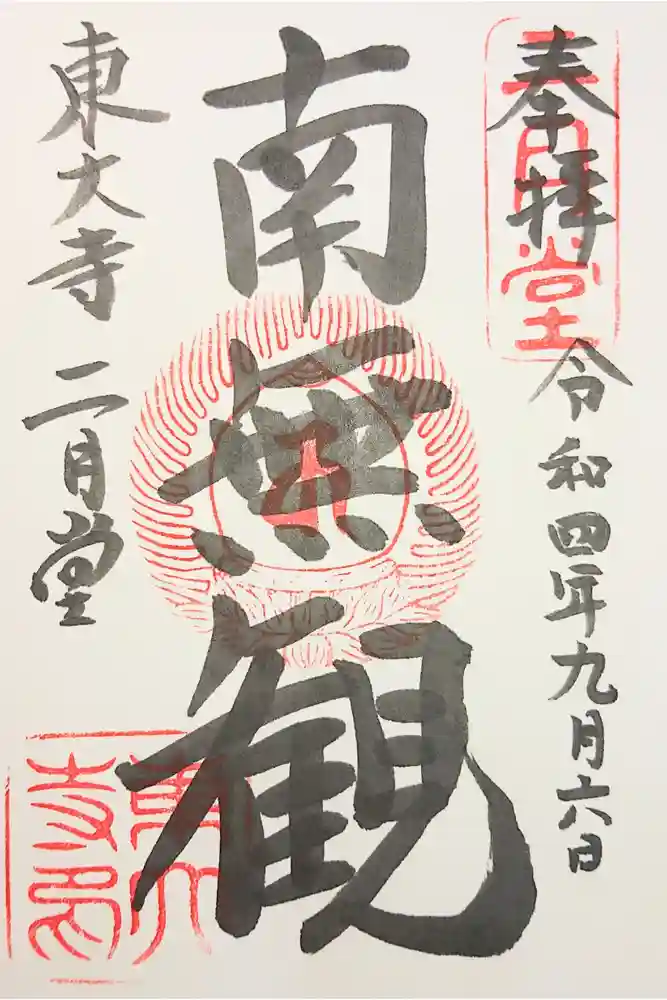 奉拝
二月堂
令和四年九月六日
南無観
東大寺 二月堂